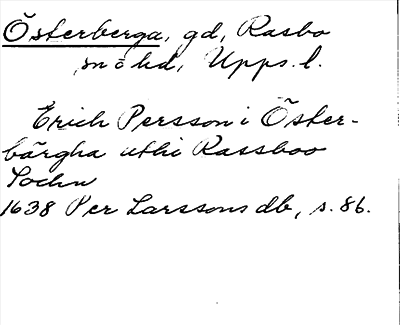 Österberga, gd, Rasbo
sn o hd, Upps. l.
Erich Persson i Öster-
bärgha uthi Rassboo
Sochn
1638 Per Larssons db, s. 86.